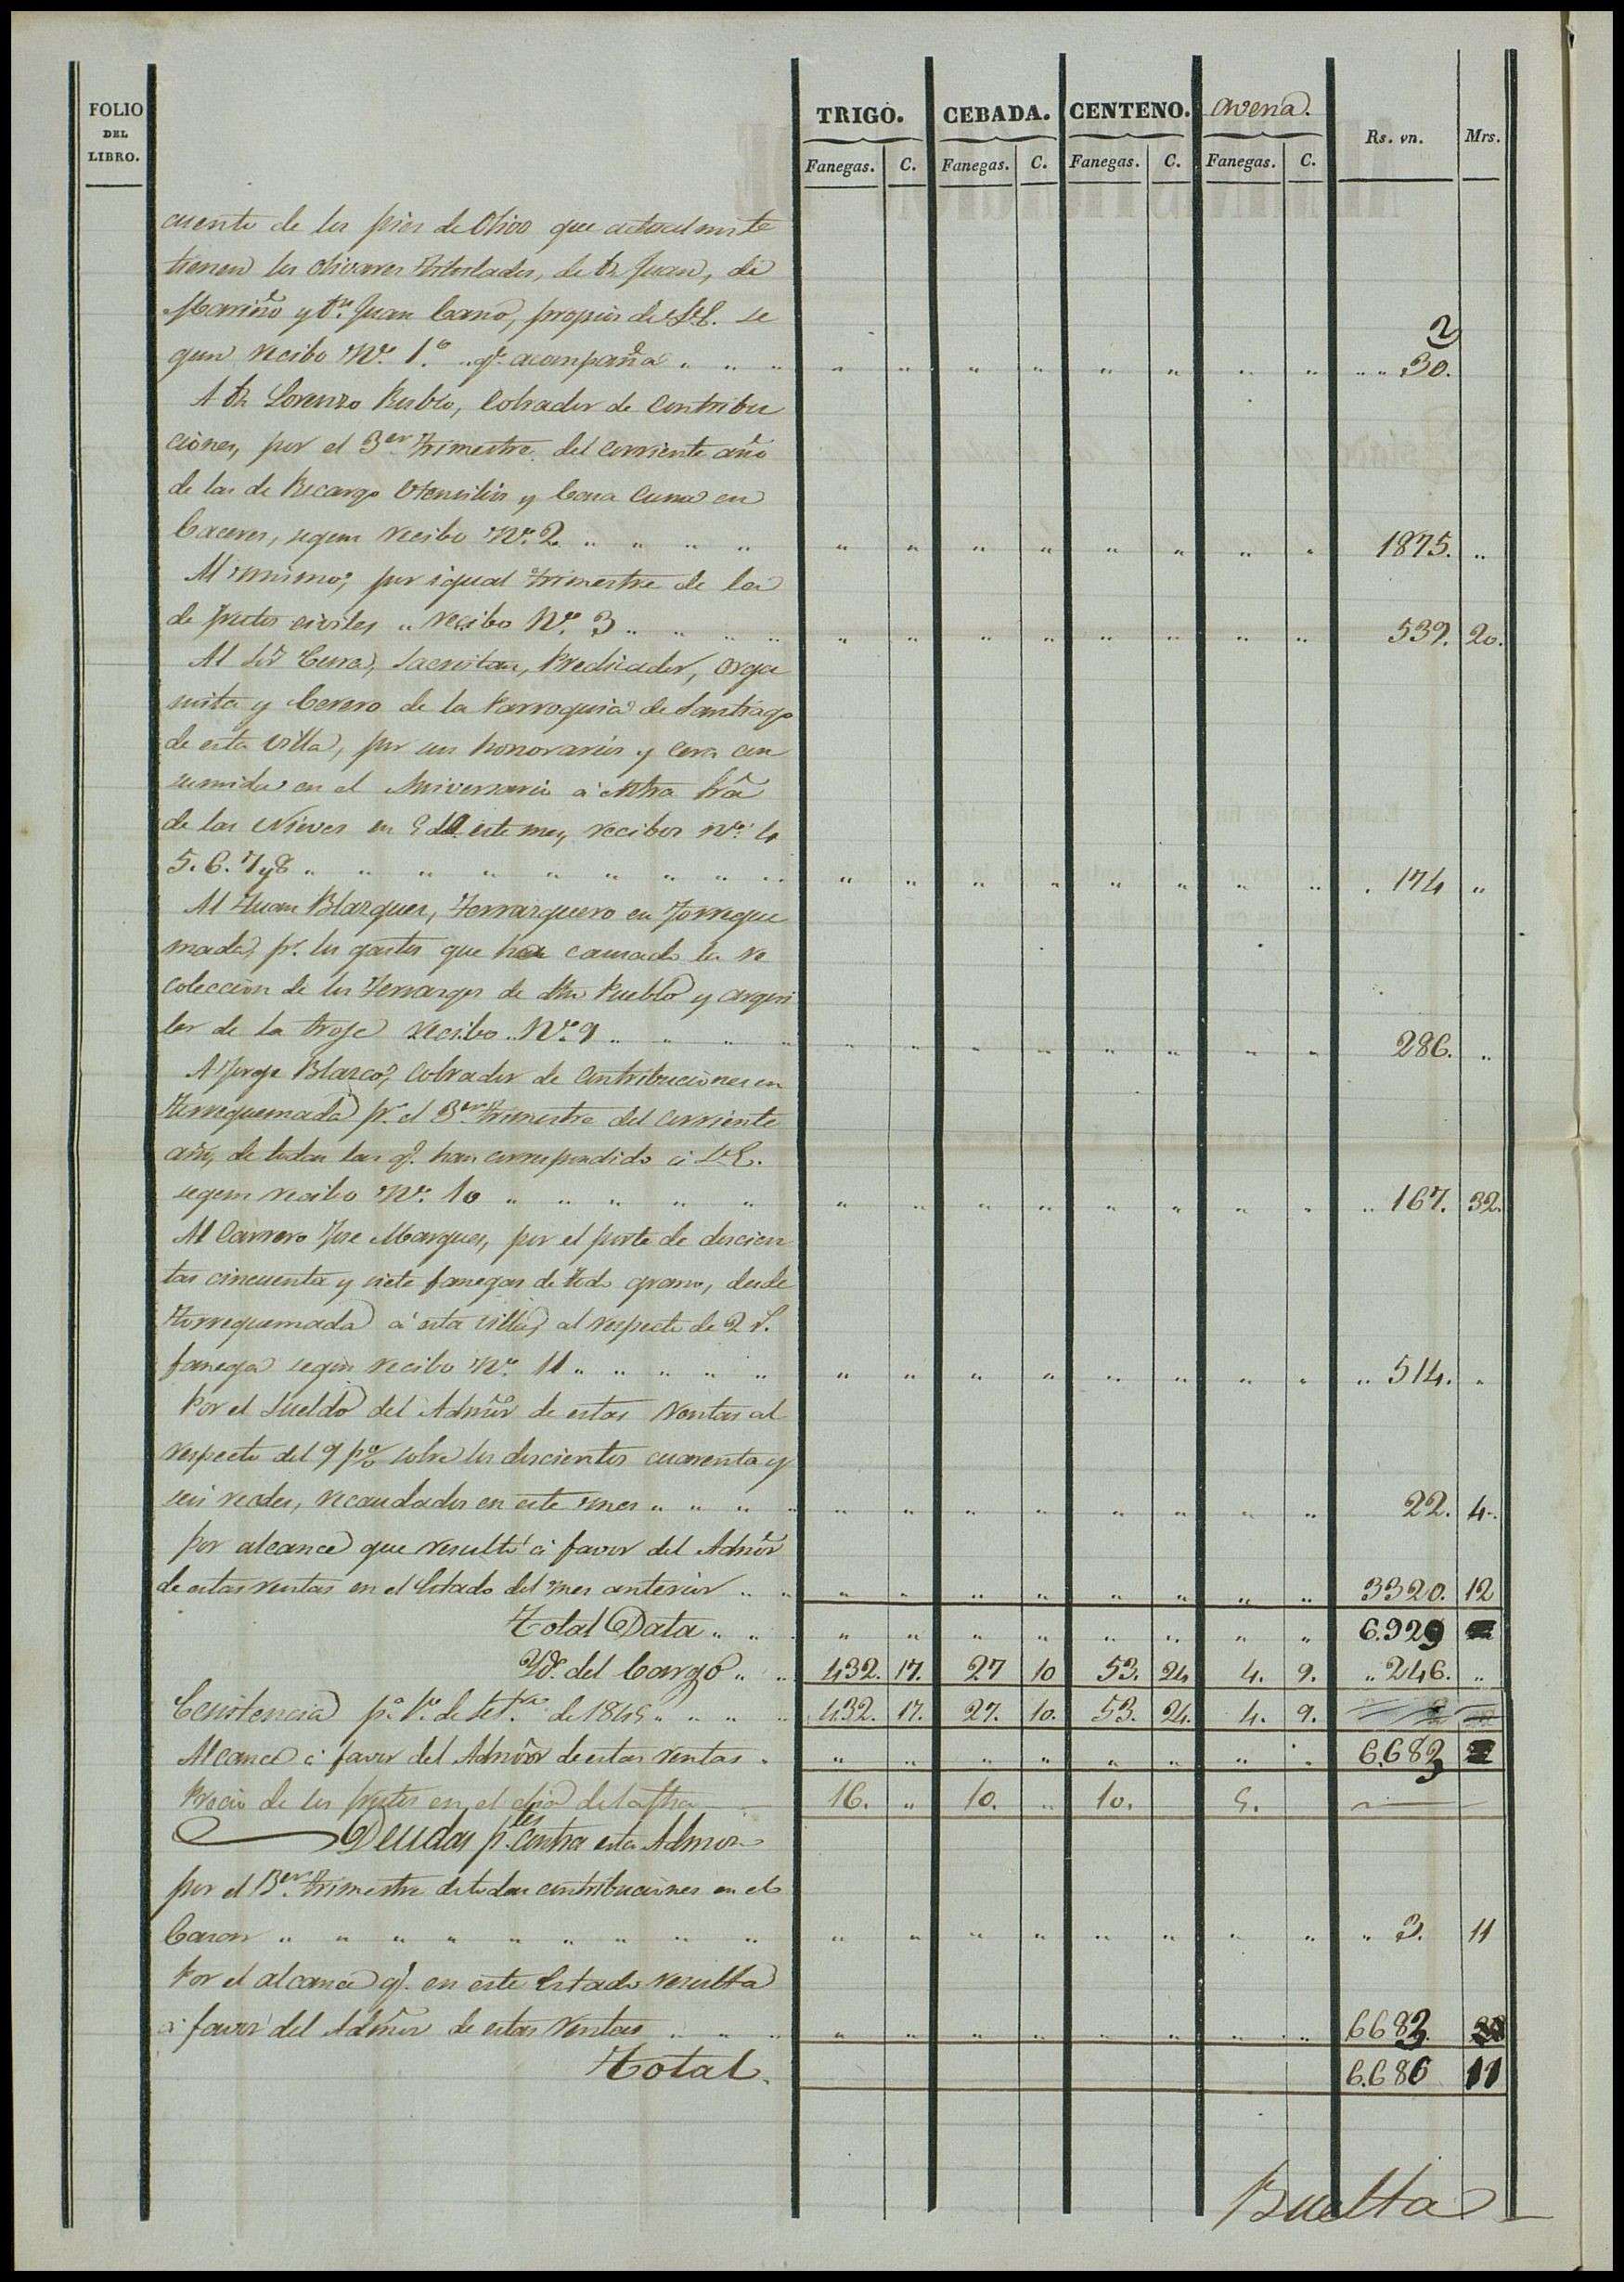 FOLIO DEL LIBRO.
TRIGO. CEBADA. CENTENO. Avena. Rs. vn. Mrs.
Fanegas. C. Fanegas. C. Fanegas. C. Fanegas. C.
cuento de los pies de Olivo que actualmte
tienen los olivares titulados, de Dn Juan, de
Mariño y Dn. Juan Cano, propios de S.E. se 2
gun recibo No. 1o. " qe. acompaña " " " " " " " " " " " " " 30.
A Dn Lorenzo Rublo, Cobrador de Contribu
ciones, por el 3er. trimestre del corriente año
de las de Recargo Utensilios y Casa Cuna en
Caceres, segun recibo No. 2. " " " " " " " " " " " " 1875. "
Al mismo, por igual trimestre de la
de frutos civiles " recibo No. 3 " " " " " " " " " " " " 539. 20.
Al Sor Cura, Sacristan, Predicador, Orga
nista y Cerero de la Parroquia de Santiago
de esta villa, por sus honorarios y cera con
sumida en el Aniversario á Ntra Sra
de las Nieves en 5 de este mes, recibos No. 4
5. 6. 7 y 8 " " " " " " " " " " " " " " " " . 174 "
Al Juan Blazquez, Terrazguero en Torreque
mada, pr. los gastos que han causado la re
coleccion de los Terrazgos de dho Pueblo y alqui
ler de la troje recibo No. 9 " " " " " " " " " " " " 286. "
A Jorge Blazco, Cobrador de Contribuciones en
Torrequemada pr. el 3er. trimestre del corriente
año, de todas las qe. han correspondido á S.E.
segun recibo No. 10 " " " " " " " " " " " " " " 167. 32.
Al Carrero Jose Marques, por el porte de doscien
tas cincuenta y siete fanegas de todo grano, desde
Torrequemada á esta villa, al respecto de 2 rs.
fanega segun recibo No. 11 " " " " " " " " " " " " " " 514. "
Por el Sueldo del Admor de estas Rentas al
respecto del 9 p% sobre los doscientos cuarenta y
seis reales, recaudados en este mes " " " " " " " " " " " " 22. 4.
Por alcance que resultó á favor del Admor
de estas rentas en el Estado del mes anterior " " " " " " " " " " 3320. 12
Total Data " " " " " " " " " " 6.929
Yd. del Cargo " " 432. 17. 27 10 53. 24 4. 9. " 246. "
Existencia pa. 1o. de Setre. de 1845 " " " " 432. 17. 27. 10. 53. 24. 4. 9.
Alcance á favor del Admor de estas rentas " " " " " " " " " 6.683
Precio de los frutos en el dia de la fha 16. " 10. " 10. 5.
Deudas ptes. contra esta Admon
por el 3er. trimestre de todas contribuciones en el
Casar " " " " " " " " " " " " " " " " " " 3. 11
Por el alcance qe. en este Estado resulta
á favor del Admor de estas Rentas " " " " " " " " " " " 6683.
Total. 6.686 11
Buelta